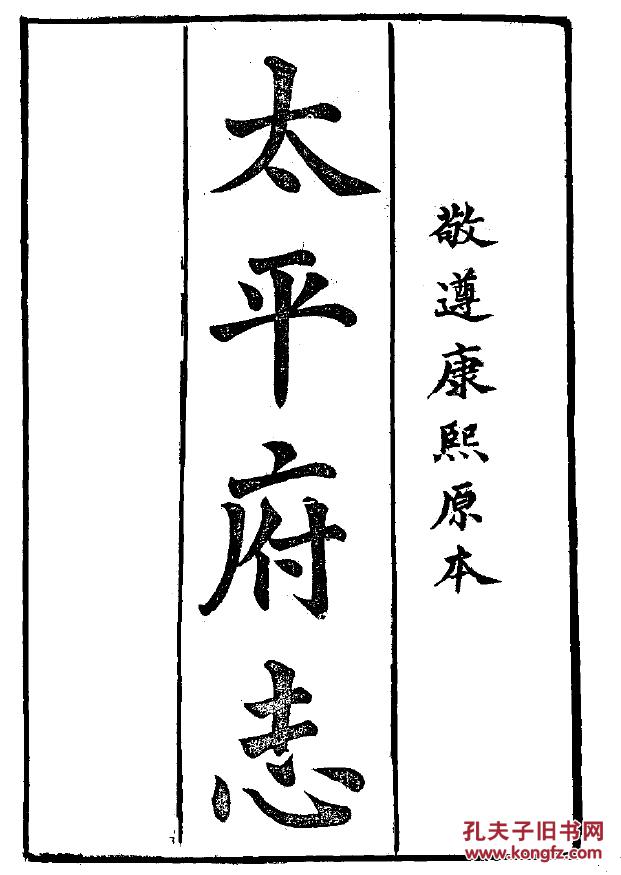 敬遵康熙原本
太平府志
孔夫子旧书网
www.kongfz.com